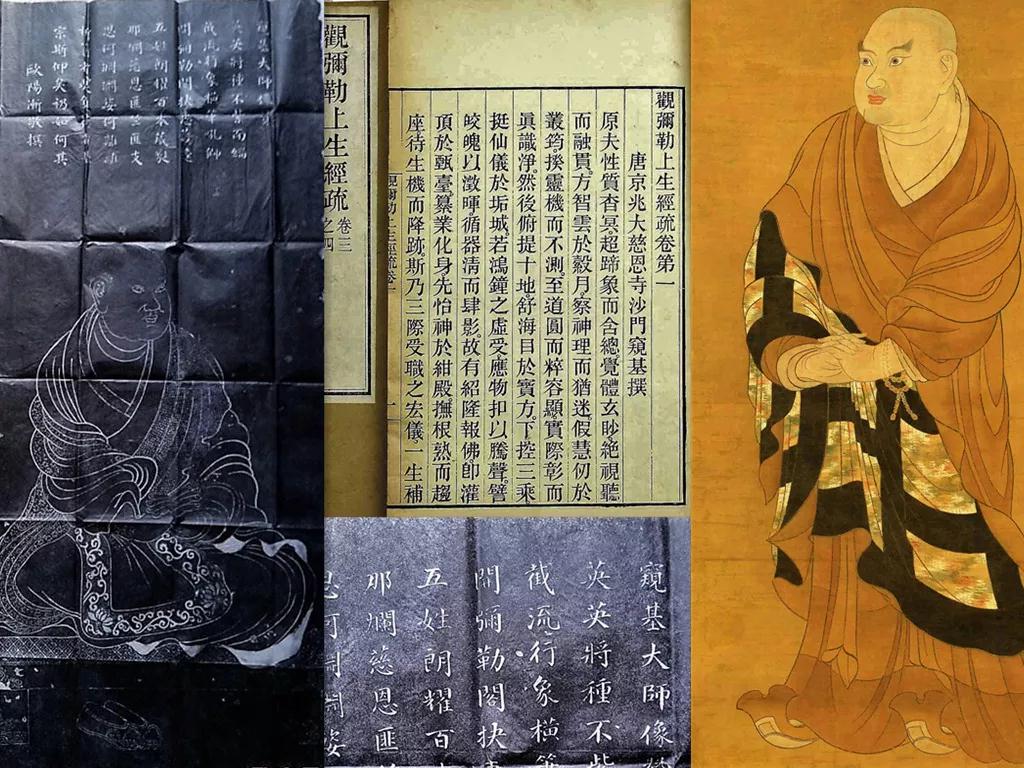 窺基大師像
英英將種不
截流行
五姓朗耀百本成裂
那爛慈恩匪
思何淵淵姿何
宗斯仰矣
如何其
歐陽漸敬撰
觀彌勒上生經疏
卷三
之四
觀彌勒上生經疏卷第一
唐京兆大慈恩寺沙門窺基撰
原夫性質杳冥超蹄象而含總覺體玄眇絕視聽
而融貫。方智雲於縠月察神理而猶迷。假慧仞於
叢筠。揆靈機而不測。至道圓而粹容顯。實際彰而
眞識淨。然後俯提十地舒海目於寳方。下控三乘
挺仙儀於垢城。若鴻鐘之虛受應物扣以騰聲。譬
皎魄以澂暉。循器清而肆影。故有紹隆報佛卽灌
頂於甄臺。纂業化身先怡神於紺殿。撫根熟而趨
座待生機而降跡。斯乃三際受職之宏儀一生補
觀彌勒上生經疏卷一
窺基大師像
英英將種不
截流行象橫
閣彌勒閣抉
五姓朗耀百
那爛慈恩匪
思何淵淵姿